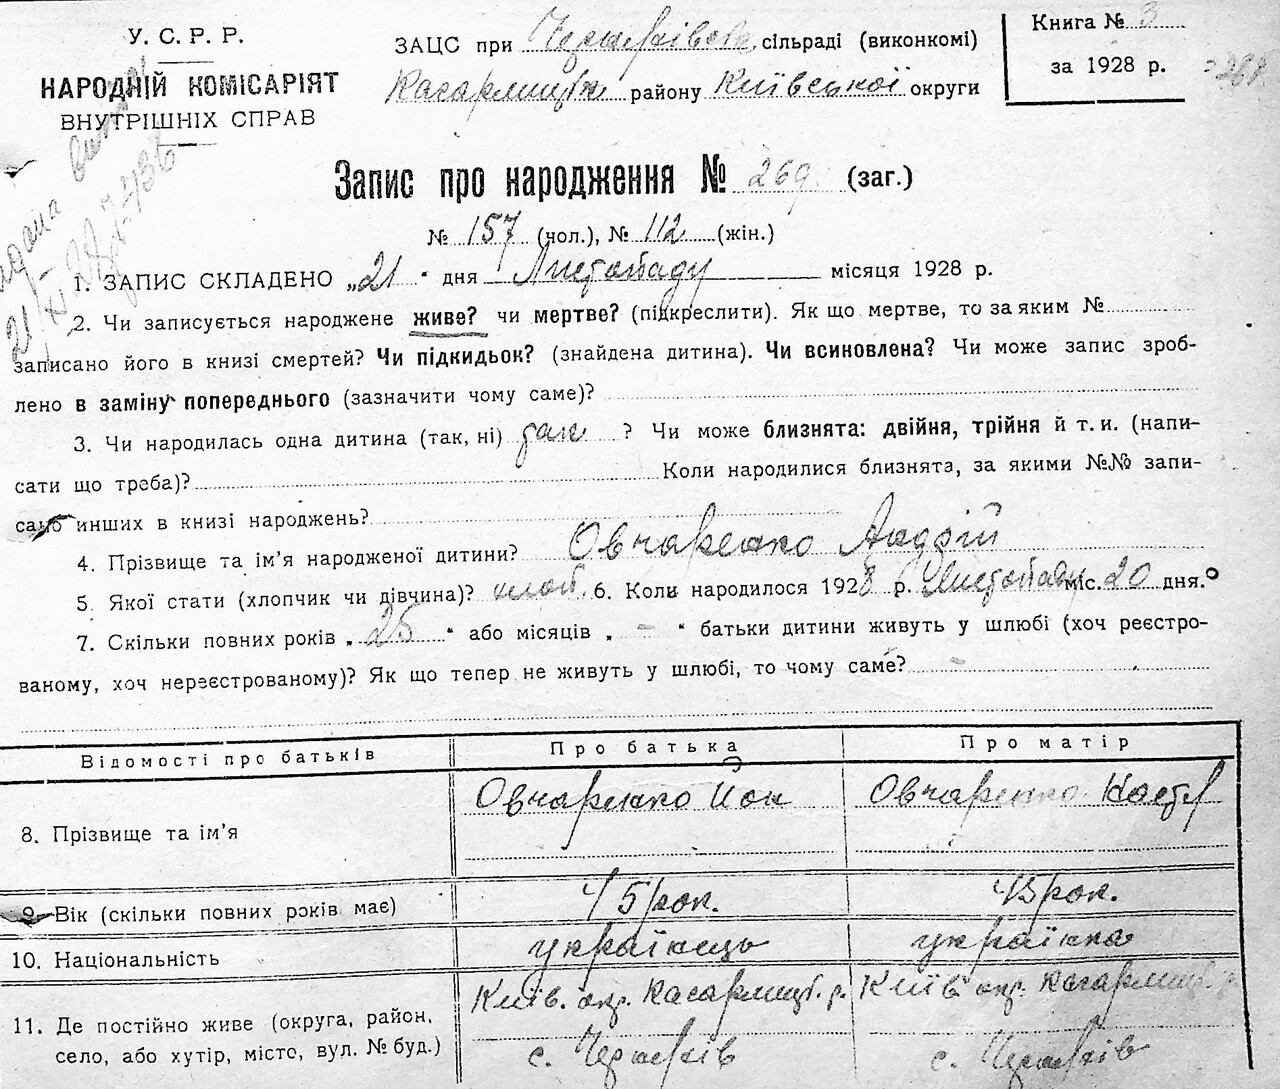 У. С. Р. Р.
НАРОДНІЙ КОМІСАРІЯТ
ВНУТРІШНІХ СПРАВ
ЗАЦС при сільраді (виконкомі)
району Київської округи
Книга № 3
за 1928 р.
Запис про народження № 269 (заг.)
№ 157 (чол.), № 112 (жін.)
1. ЗАПИС СКЛАДЕНО „21" дня Листопаду місяця 1928 р.
2. Чи записується народжене живе? чи мертве? (підкреслити). Як що мертве, то за яким №
записано його в книзі смертей? Чи підкидьок? (знайдена дитина). Чи всиновлена? Чи може запис зроб-
лено в заміну попереднього (зазначити чому саме)?
3. Чи народилась одна дитина (так, ні) так ? Чи може близнята: двійня, трійня й т. и. (напи-
сати що треба)? Коли народилися близнята, за якими №№ запи-
сано инших в книзі народжень?
4. Прізвище та ім'я народженої дитини? Овчаренко Андрій
5. Якої стати (хлопчик чи дівчина)? хлоп. 6. Коли народилося 1928 р. Листопаду міс. 20 дня.
7. Скільки повних років „ 25 " або місяців „ — " батьки дитини живуть у шлюбі (хоч реєстро-
ваному, хоч нереєстрованому)? Як що тепер не живуть у шлюбі, то чому саме? —
Відомості про батьків Про батька Про матір
8. Прізвище та ім'я Овчаренко Овчаренко
9. Вік (скільки повних років має) 45 рок. 45 рок.
10. Національність українець українка
11. Де постійно живе (округа, район, Київ. окр. Київ. окр.
село, або хутір, місто, вул. № буд.) с. с.